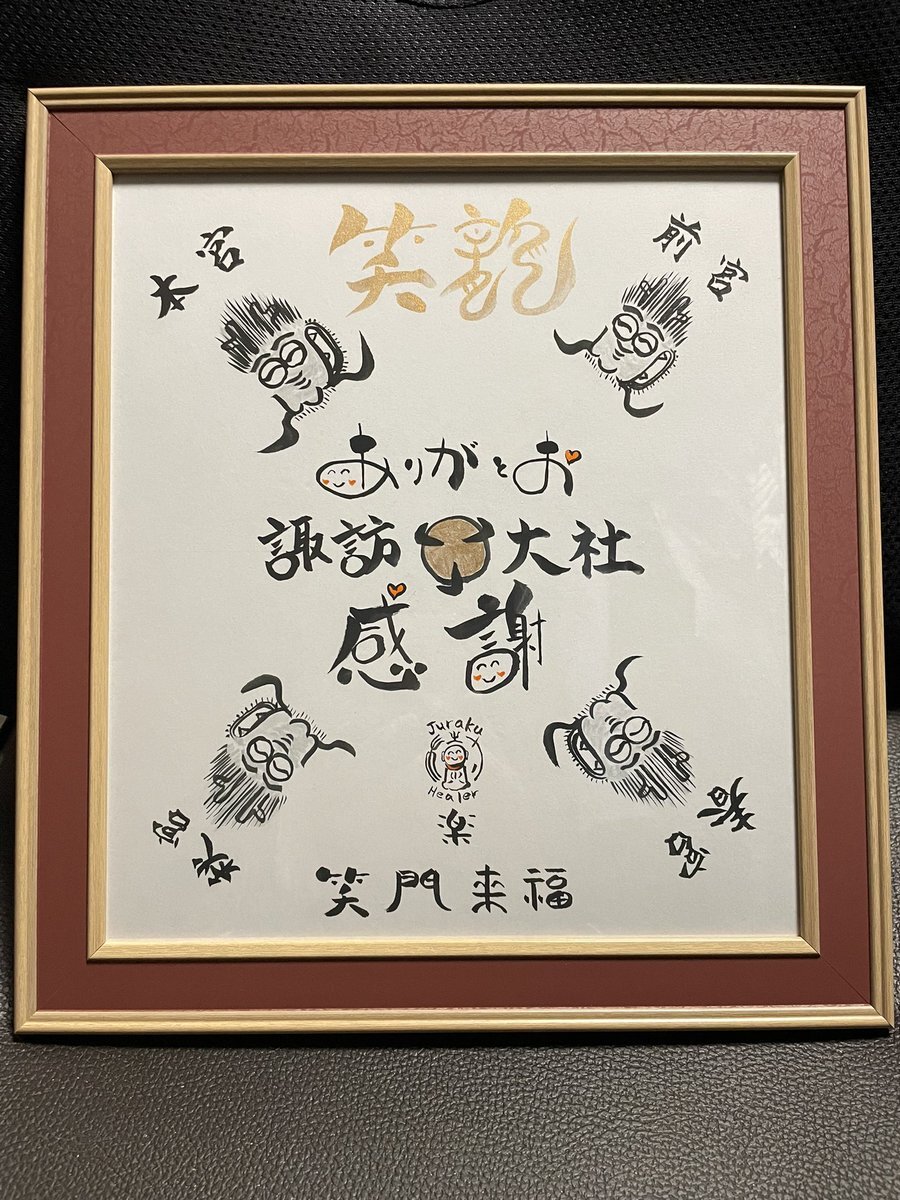 笑龍
本宮
前宮
ありがとお
諏訪大社
感謝
Juraku
Healer
楽
秋宮
春宮
笑門来福